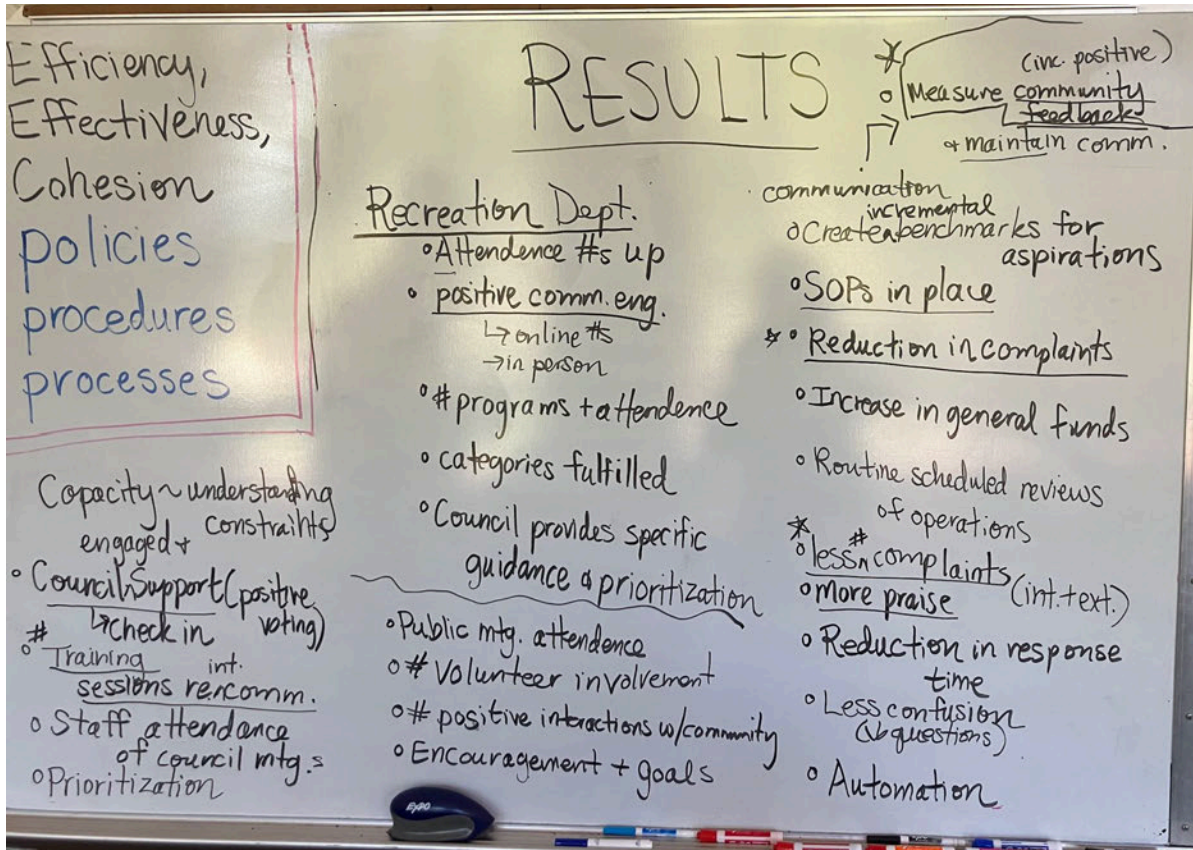 Efficiency,
Effectiveness,
Cohesion
policies
procedures
processes
Capacity ~ understanding
constraints
engaged +
° Council Support (positive
voting)
↳ check in
# 
° Training int.
sessions re: comm.
° Staff attendance
of council mtg.s
° Prioritization
RESULTS
Recreation Dept.
° Attendence #s up
° positive comm. eng.
↳ online #s
→ in person
° # programs + attendence
° categories fulfilled
° Council provides specific
guidance & prioritization
° Public mtg. attendence
° # Volunteer involvement
° # positive interactions w/community
° Encouragement + goals
(inc. positive)
° Measure community
feedback
+ maintain comm.
communication
incremental
° Create benchmarks for
aspirations
° SOPs in place
* ° Reduction in complaints
° Increase in general funds
° Routine scheduled reviews
of operations
* #
° less complaints
(int. + ext.)
° More praise
° Reduction in response
time
° Less confusion
questions)
° Automation
EXPO